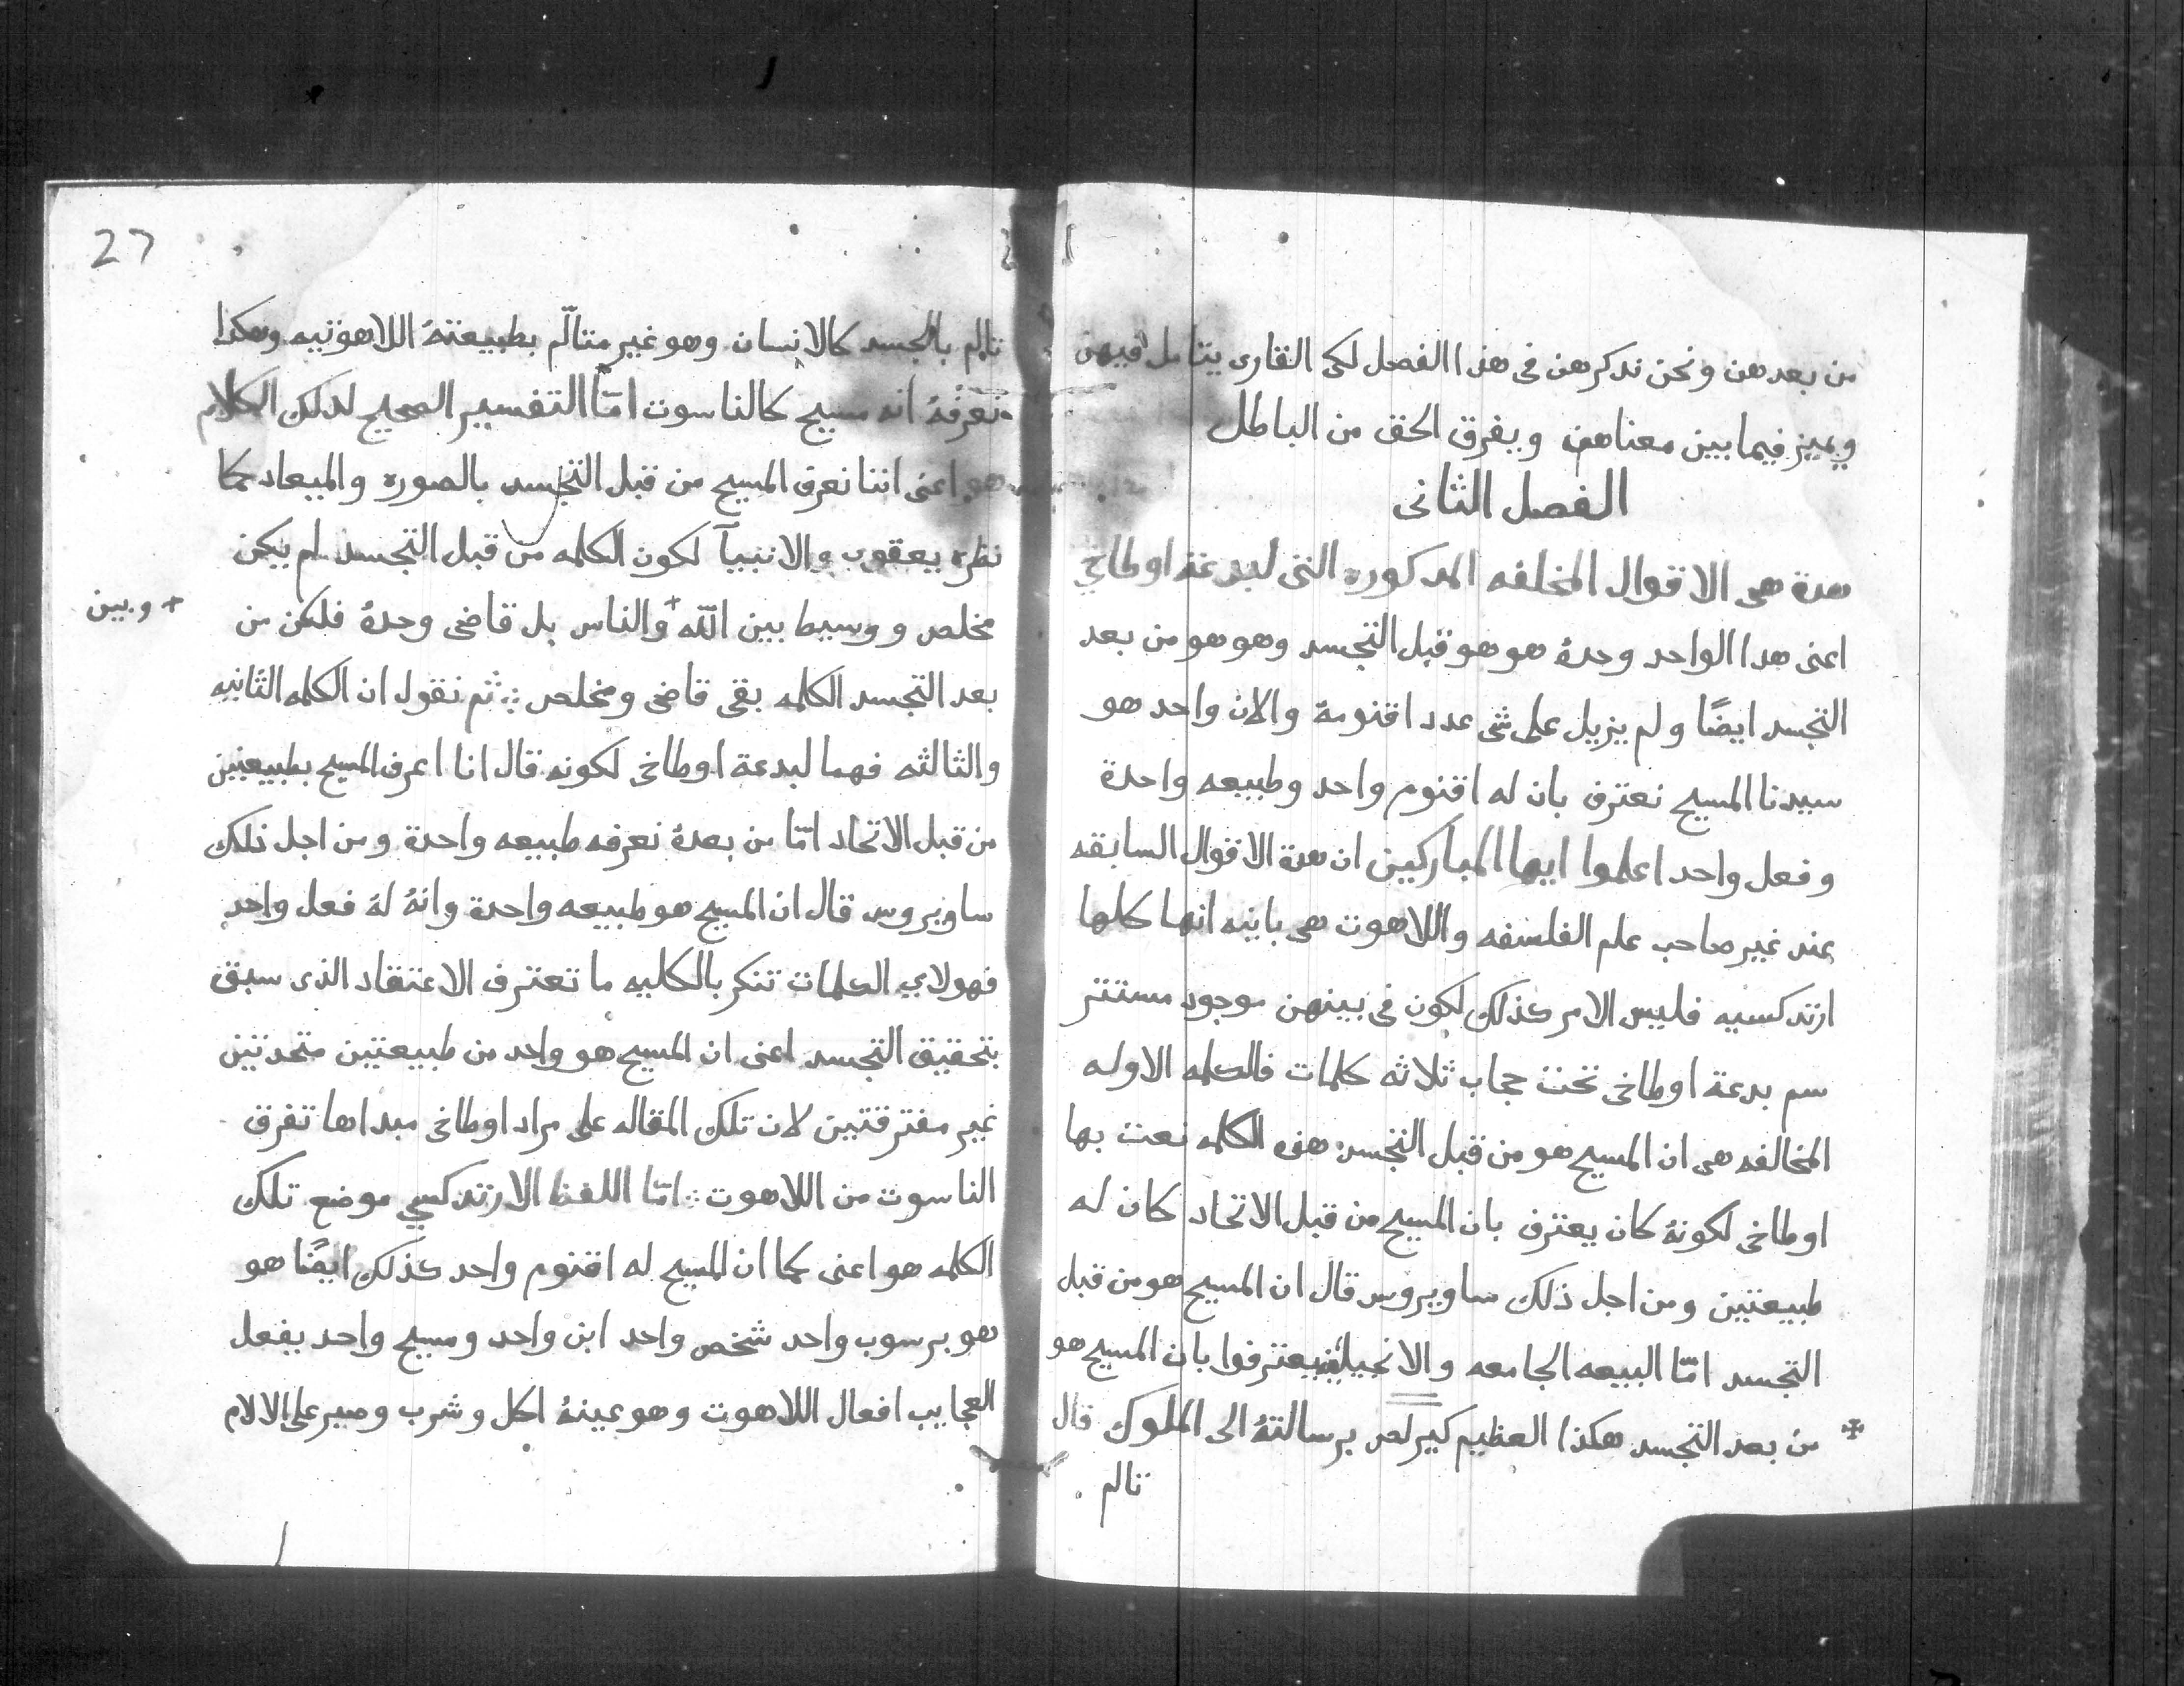 من بعدهن ونحن ندكرهن فى هذا الفصل لكى القارى يتامل فيهن
ويميز فيما بين معناهن ويفرق الحق من الباطل
الفصل الثانى
هدة هى الاقوال المخلفه المدكورة التى لبدعة اوطاخي
اعنى هدا الواحد وحدهُ هو هو قبل التجسد وهو هو من بعد
التجسد ايضًا ولم يزيل على شى عدد اقنومهُ والان واحد هو
سيدنا المسيح نعترف بان له اقنوم واحد وطبيعه واحدة
وفعل واحد اعلموا ايها المباركين ان هدة الاقوال السابقه
عند غير صاحب علم الفلسفه واللاهوت هى باينه انها كلها
ارتدكسيه فليس الامر كذلك لكون فى بينهن موجود مستتر
سم بدعة اوطاخى تحت حجاب ثلاثه كلمات فالكلمه الاوله
المخالفه هى ان المسيح هو من قبل التجسد هذه الكلمه نعت بها
اوطاخى لكونهُ كان يعترف بان المسيح من قبل الاتحاد كان له
طبيعتين ومن اجل ذلك ساويروس قال ان المسيح هو من قبل
التجسد امّا البيعه الجامعه والانجيليه يعترفوا بان المسيح هو
من بعد التجسد هكذا العظيم كيرلص برسالتهُ الى الملوك قال
تالم
27
تالم بالجسد كالانسان وهو غير متالّم بطبيعتهُ اللاهوتيه وهكدا
نعرفهُ انه مسيح كالناسوت امّا التفسير الصحيح لدلك الكلام
هو اعنى اننا نعرف المسيح من قبل التجسد بالصوره والميعاد كما
نظره يعقوب والانبيآ لكون الكلمه من قبل التجسد لم يكن
مخلص ووسيط بين الله + والناس بل قاضى وحدهُ فلكن من
+ وبين
بعد التجسد الكلمه بقى قاضى ومخلص ⁘ ثم نقول ان الكلمه الثانيه
والثالثه فهما لبدعة اوطاخى لكونه قال انا اعرف المسيح بطبيعتين
من قبل الاتحاد امّا من بعدهُ نعرفه طبيعه واحدة ومن اجل ذلك
ساويروس قال ان المسيح هو طبيعه واحدة وانهُ لهُ فعل واحد
فهولاي الكلمات تنكر بالكليه ما تعترف الاعتقاد الذى سبق
بتحقيق التجسد اعنى ان المسيح هو واحد من طبيعتين متحدتين
غير مفترقتين لان تلك المقاله على مراد اوطاخى مبداها تفرق
الناسوت من اللاهوت ⁘ امّا اللفظ الارتدكسي موضع تلك
الكلمه هو اعنى كما ان المسيح له اقنوم واحد كذلك ايضًا هو
هو برسوب واحد شخص واحد ابن واحد ومسيح واحد يفعل
العجايب افعال اللاهوت وهو عينهُ اكل وشرب وصبر على الالام